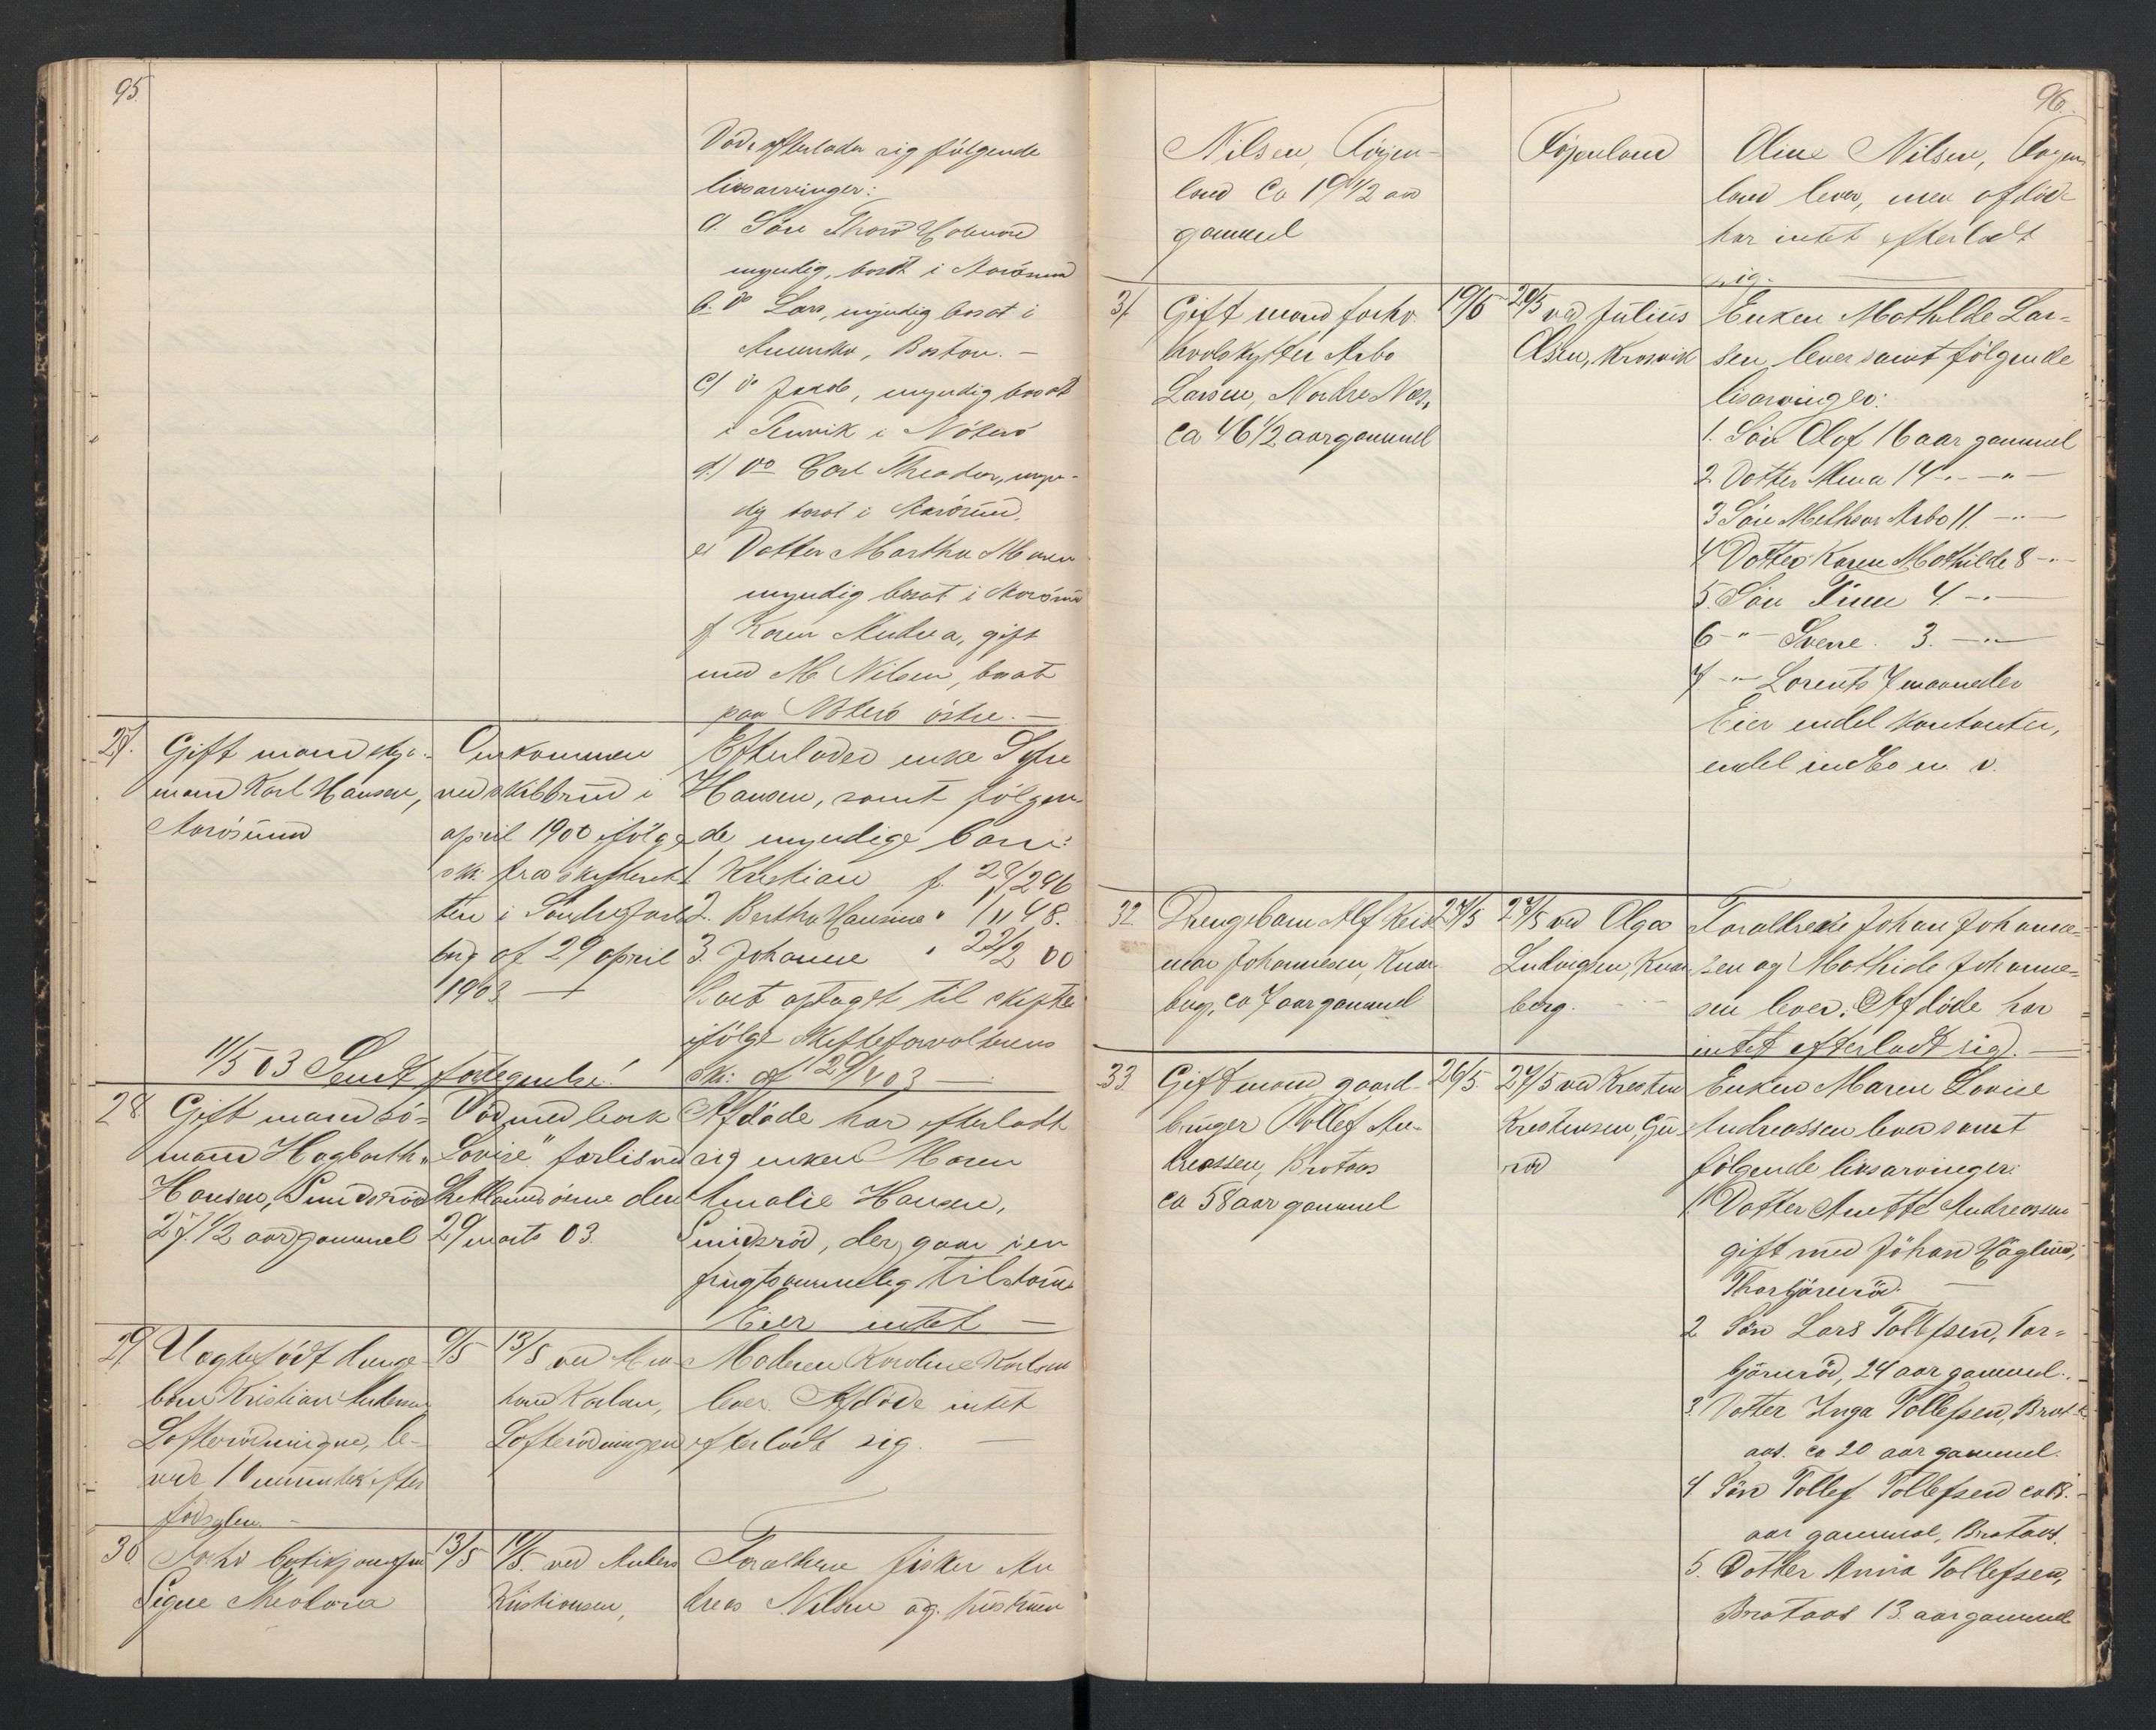 95.
Död. efterlader sig følgende
livsarvinger:
a. Søn Thorv
myndig, bosat i Aarøsund
b. do Lars, myndig bosat i
Amerika, Boston. —
c) do myndig bosat
i Tenvik i Nøterø
d.) do Carl Theodor, myn-
dig bosat i Aarøsund.
e) Datter Martha Maren
myndig bosat i Aarøsund
f Karen Andrea, gift
med M. Nilsen, bosat
paa Nøterø østre. —
27. Gift mand
mand Karl Hansen,
Aarøsund
Omkommen
ved skibbrud i
april 1900 ifølge
skr. fra skifteret
ten i Søndre Jarls
berg af 29 april
1903 —
Efterlader enke
Hansen, samt følgen-
de myndige barn:
1. Kristian f.
2. Bertha
3. Johanne
Boet optaget til skifte
ifølge Skifteforvalterens
skr. af 29/4 03 —
11/5 03 Sendt fortegnelse!
28 Gift mand sø-
mand Hagbarth
Hansen, Smidsrød
27 1/2 aar gammel
Død med bark
"Lovise" forlis ved
Shetlandsøerne den
29 marts 03.
Afdøde har efterladt
sig enken Maren
Amalie Hansen,
Smidsrød, der gaar i en
frugtsommelig tilstand
Eier intet —
29 Uægtefødt drenge
barn Kristian
le-
vede 10 minuter efter
fødselen. —
9/5
13/5 ved
Karlsen,
Moderen Karoline Karlsen
lever. Afdøde intet
efterladt sig. —
30
Signe Theodora
13/5
19/5. ved Anders
Kristiansen,
Forældrene fisker An
dreas Nilsen og hustruen
96.
Nilsen, Føyen-
land Ca 19 1/2 aar
gammel
Føyenland
Oline Nilsen, Føyen-
land lever, men afdøde
har intet efterladt
sig. —
31 Gift mand forhv.
hvalskytter Arbo
Larsen, Nordre Næs,
ca 46 1/2 aar gammel
19/5
20/5 ved Julius
Olsen,
Enken Mathilde Lar-
sen lever samt følgende
livsarvinger:
1. Søn Olaf 16 aar gammel
2 Datter 14 — " —
3 Søn Arbo 11. — " —
4 Datter Karen Mathilde 8 — " —
5. Søn Finn 4. — " —
6 — " — Sverre. 3. — " —
7 — " — Lorents 7 maaneder
Eier endel kontanter,
endel indbo m. v.
32. Drengebarn Alf Reid
mar Johannesen, Knar
berg, ca 7 aar gammel
23/5
27/5 ved Olga
Ludvigsen, Knar
berg.
Forældrene Johan Johanne-
sen og Mathilde Johanne-
sen lever. Afdøde har
intet efterladt sig. —
33 Gift mand gaard-
bruger Tollef An-
dreassen, Brataas
ca 58 aar gammel
26/5
27/5 ved Kresten
Krestensen,
Enken Maren Lovise
Andreassen lever samt
følgende livsarvinger:
1 Datter Anette Andreassen
gift med Johan Høglund,
Thorbjørnrød. —
2 Søn Lars Tollefsen, Tor-
bjørnrød, 24 aar gammel.
3. Datter Inga Tollefsen, Brat-
aas. ca 20 aar gammel.
4. Søn Tollef Tollefsen ca 18.
aar gammel, Brataas.
5. Datter Anna Tollefsen,
Brataas 13. aar gammel